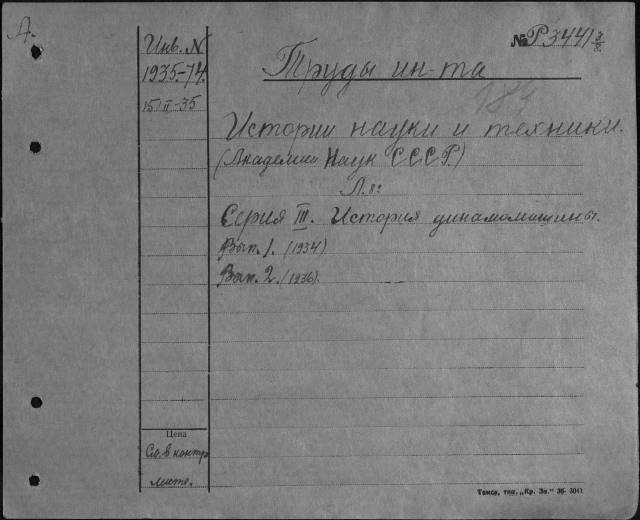 А.
№ Р3441 3/8.
Инв. №
1935-74.
15/II-35
Труды ин-та
184
Истории науки и техники.
(Академии Наук СССР.)
Л.:
Серия III. История динамомашины.
Вып. 1. (1934)
Вып. 2. (1936).
Цена
См. в контр
листе.
Томск, тип. „Кр. Зн." 36- 3041